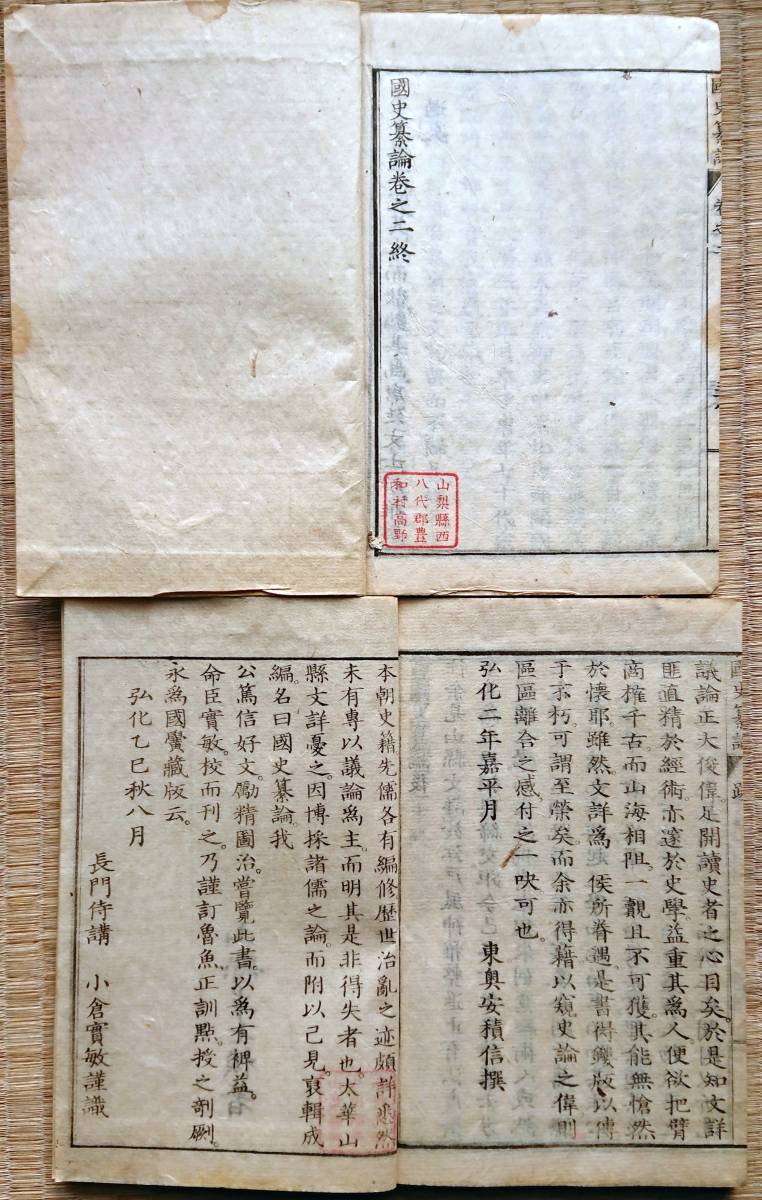 國史纂論卷之二終
山梨縣西
八代郡豊
和村高野
國史纂論 跋
議論正大俊偉。足開讀史者之心目矣。於是知文詳
匪直精於經術。亦邃於史學。益重其爲人。便欲把臂
商榷千古。而山海相阻。一覿且不可獲。其能無愴然
於懷耶。雖然。文詳爲 侯所眷遇。是書得鏤版以傳
于不朽。可謂至榮矣。而余亦得藉以窺史論之偉。則
區區離合之感。付之一吷可也。
弘化二年嘉平月 東奥安積信撰
本朝史籍先儒各有編修歴世治亂之迹頗詳悉然
未有專以議論爲主。而明其是非得失者也。太華山
縣文詳憂之。因博採諸儒之論。而附以己見。裒輯成
編。名曰國史纂論。我
公篤信好文。勵精圖治。嘗覽此書。以爲有裨益。
命臣實敏。校而刊之。乃謹訂魯魚。正訓點。授之剞劂。
永爲國黌藏版云。
弘化乙巳秋八月
長門侍講 小倉實敏謹識